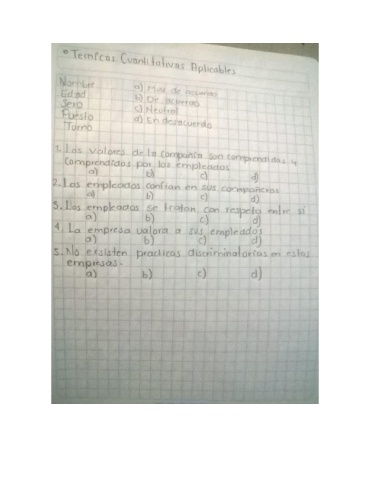 • Tecnicas Cuantitativas Aplicables
Nombre a) Muy de acuerdo
Edad b) De acuerdo
Sexo c) Neutral
Puesto d) En desacuerdo
Turno
1. Los valores de la compañia son comprendidos y
comprendidos por los empleados
a) b) c) d)
2. Los empleados confian en sus compañeros
a) b) c) d)
3. Los empleados se tratan con respeto entre si
a) b) c) d)
4. La empresa valora a sus empleados
a) b) c) d)
5. No existen practicas discriminatorias en estas
empresas.
a) b) c) d)